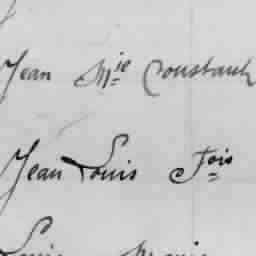 Jean Mie Constant
Jean Louis Fois
Louis Marie